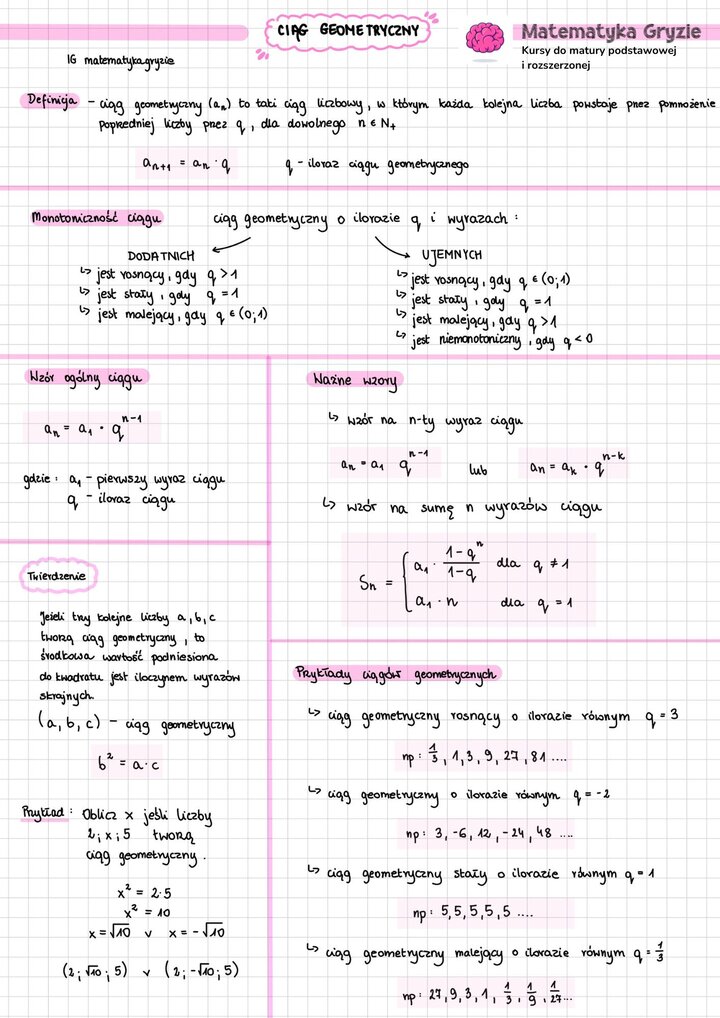 CIĄG GEOMETRYCZNY
Matematyka Gryzie
Kursy do matury podstawowej
i rozszerzonej
IG matematykagryzie
Definicja - ciąg geometryczny (aₙ) to taki ciąg liczbowy, w którym każda kolejna liczba powstaje przez pomnożenie
poprzedniej liczby przez q, dla dowolnego n ∈ N₊
aₙ₊₁ = aₙ · q
q - iloraz ciągu geometrycznego
Monotoniczność ciągu
ciąg geometryczny o ilorazie q i wyrazach :
DODATNICH
↳ jest rosnący, gdy q > 1
↳ jest stały, gdy q = 1
↳ jest malejący, gdy q ∈ (0;1)
UJEMNYCH
↳ jest rosnący, gdy q ∈ (0;1)
↳ jest stały, gdy q = 1
↳ jest malejący, gdy q > 1
↳ jest niemonotoniczny, gdy q < 0
Wzór ogólny ciągu
aₙ = a₁ · qⁿ⁻¹
gdzie : a₁ - pierwszy wyraz ciągu
q - iloraz ciągu
Ważne wzory
↳ wzór na n-ty wyraz ciągu
aₙ = a₁ qⁿ⁻¹ lub aₙ = aₖ · qⁿ⁻ᵏ
↳ wzór na sumę n wyrazów ciągu
Sₙ = { a₁ · (1-qⁿ)/(1-q) dla q ≠ 1
a₁ · n dla q = 1
Twierdzenie
Jeżeli trzy kolejne liczby a, b, c
tworzą ciąg geometryczny, to
środkowa wartość podniesiona
do kwadratu jest iloczynem wyrazów
skrajnych.
(a, b, c) - ciąg geometryczny
b² = a·c
Przykład : Oblicz x jeśli liczby
2; x; 5 tworzą
ciąg geometryczny.
x² = 2·5
x² = 10
x = √10 v x = -√10
(2; √10; 5) v (2; -√10; 5)
Przykłady ciągów geometrycznych
↳ ciąg geometryczny rosnący o ilorazie równym q = 3
np: 1/3, 1, 3, 9, 27, 81 ....
↳ ciąg geometryczny o ilorazie równym q = -2
np: 3, -6, 12, -24, 48 ....
↳ ciąg geometryczny stały o ilorazie równym q = 1
np: 5, 5, 5, 5, 5 ....
↳ ciąg geometryczny malejący o ilorazie równym q = 1/3
np: 27, 9, 3, 1, 1/3, 1/9, 1/27...